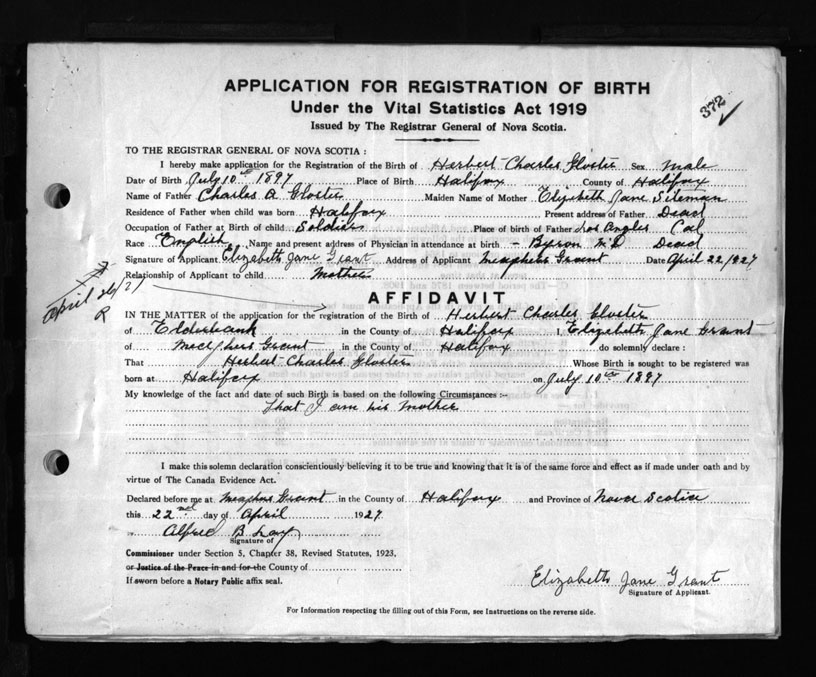 APPLICATION FOR REGISTRATION OF BIRTH
Under the Vital Statistics Act 1919
Issued by The Registrar General of Nova Scotia.
372 ✓
TO THE REGISTRAR GENERAL OF NOVA SCOTIA:
I hereby make application for the Registration of the Birth of Herbert Charles Gloster Sex Male
Date of Birth July 10th 1897 Place of Birth Halifax County of Halifax
Name of Father Charles A Gloster Maiden Name of Mother Elizabeth Jane Siteman
Residence of Father when child was born Halifax Present address of Father Dead
Occupation of Father at Birth of child Soldier Place of birth of Father Los Angles Cal
Race English Name and present address of Physician in attendance at birth - Byson M.D Dead
Signature of Applicant Elizabeth Jane Grant Address of Applicant Meaghers Grant Date April 22/927
Relationship of Applicant to child Mother
April 26/27
R
AFFIDAVIT
IN THE MATTER of the application for the registration of the Birth of Herbert Charles Gloster
of Elderbank in the County of Halifax I, Elizabeth Jane Grant
of Meaghers Grant in the County of Halifax do solemnly declare:
That Herbert Charles Gloster Whose Birth is sought to be registered was
born at Halifax on July 10th 1897
My knowledge of the fact and date of such Birth is based on the following Circumstances :-
That I am his Mother
I make this solemn declaration conscientiously believing it to be true and knowing that it is of the same force and effect as if made under oath and by
virtue of The Canada Evidence Act.
Declared before me at Meaghers Grant in the County of Halifax and Province of Nova Scotia
this 22nd day of April 1927
Alfred B
Signature of
Commissioner under Section 5, Chapter 38, Revised Statutes, 1923,
or Justice of the Peace in and for the County of
If sworn before a Notary Public affix seal.
Elizabeth Jane Grant
Signature of Applicant.
For Information respecting the filling out of this Form, see Instructions on the reverse side.